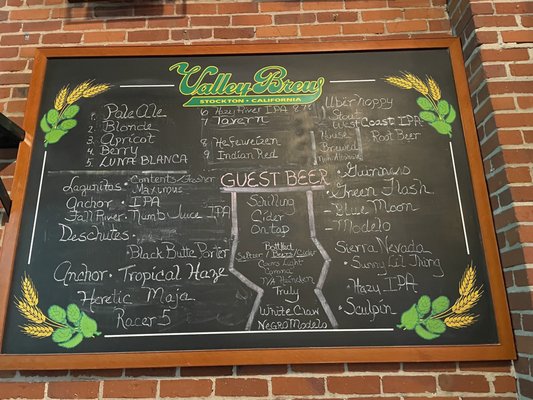 Valley Brew
STOCKTON · CALIFORNIA
1. Pale Ale
2. Blonde
3. Apricot
4. Berry
5. LUNA BLANCA
6 Hazy River IPA
7 Tavern
8 Hefeweizen
9 Indian Red
Uber hoppy
Stout
West Coast IPA
House
Brewed
Root Beer
Non Alcoholic
Lagunitas ·
Maximus
Anchor · IPA
Fall River · Numb Juice IPA
Deschutes ·
· Black Butte Porter
Anchor · Tropical Haze
Heretic Maja
Racer 5
GUEST BEER
Cider
On tap
Bottled
Seltzer / Beers / Cider
Coors Light
Corona
N/A Heineken
Truly
White Claw
NEGRO Modelo
· Guinness
· Green Flash
· Blue Moon
· Modelo
Sierra Nevada
· Sunny Lil Thing
· Hazy IPA
· Sculpin